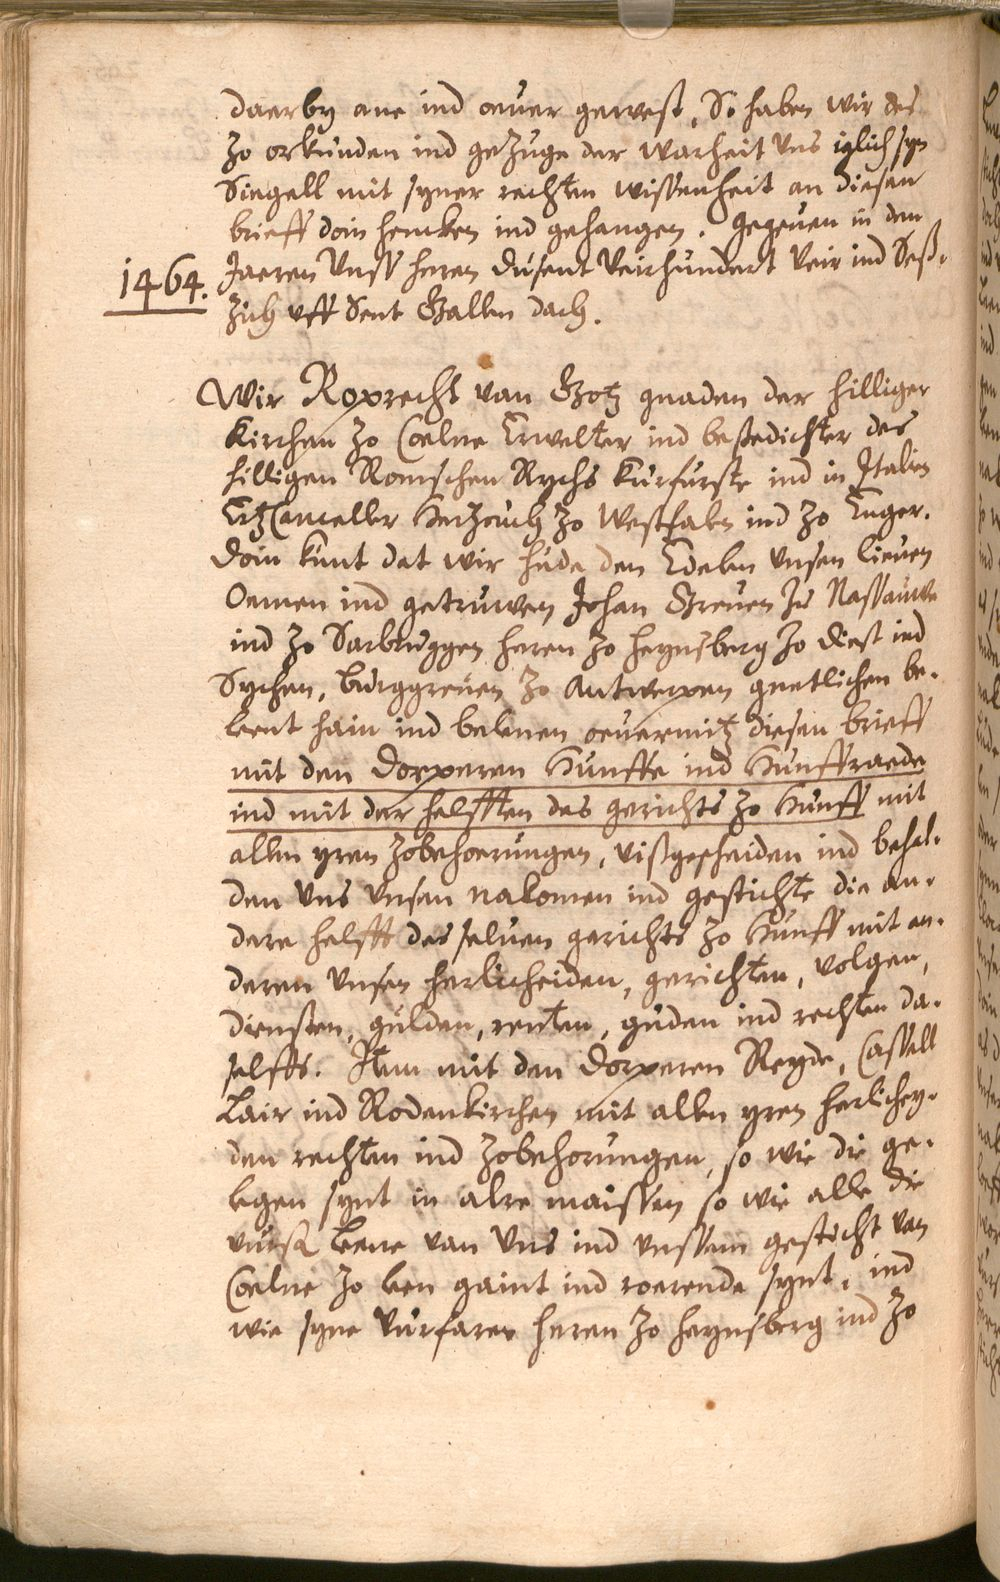 daerby ane ind oeuer gewest, So haben wir des
zo orkunden ind gezuge der warheit vns iglich syn
Siegell mit syner rechten wissenheit an diesen
brieff doin hencken ind gehangen. Gegeuen in den
1464. Jaeren vnss heren dusent veirhundert veir ind Seß-
zich vff Sent Gallen dach.
Wir Roprecht van Gotz gnaden der hilliger
Kirchen zo Coelne Erwelter ind bestedichter des
hilligen Romschen Rychs kurfurste ind in Italien
Ertzcanceller Hertzouch zo Westfalen ind zo Enger.
Doin kunt dat wir hude den Edelen vnsen lieuen
Oemen ind getruwen Johan Greuen zu Nassauwe
ind zo Sarbruggen heren zo heynsberg zo diest ind
Sychen, burggreuen zo Antwerpen gnetlichen be-
leent hain ind belenen oeuermitz diesen brieff
mit den dorperen Hunffe ind Hunffraede
ind mit der helfften des gerichts zo Hunff mit
allen yren zobehoerungen, vißgescheiden ind behal-
den vns vnsen nakomen ind gestichte die an-
dere helfft des seluen gerichts zo Hunff mit an-
deren vnsen herlicheiden, gerichten, volgen,
diensten, gulden, renten, guden ind rechten da-
selffs. Item mit den dorperen Reyde, Cassell
Lair ind Rodenkirchen mit allen yren herlichey-
den rechten ind zobehorungen, so wie die ge-
legen synt in alre maissen so wie alle die
vursz leene van vns ind vnssem gesticht van
Coelne zo leen gaint ind roerende synt, ind
wie syne vurfaren heren zo heynsberg ind zo